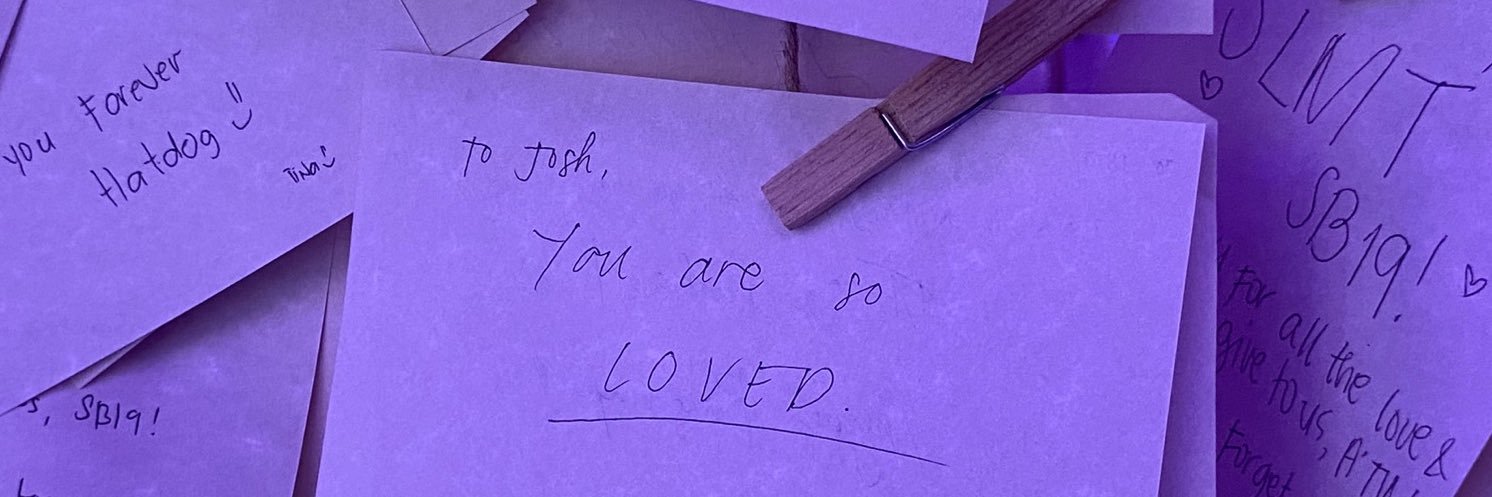 you Forever
Hatdog
To Josh,
You are so
LOVED.
SB19!
JLMT
SB19!
For all the love &
give to us, A'TIN
Forget